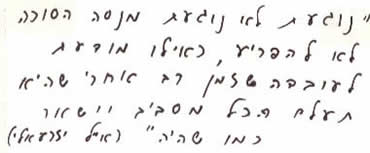 "נוגעת לא נוגעת מנסה הסורה
לא להפריע, כאילו מודעת
לעובדה שזמן רב אחרי שהיא
תעלם הכל מסביב יישאר
כמו שהיה" (אייל יזרעאלי)